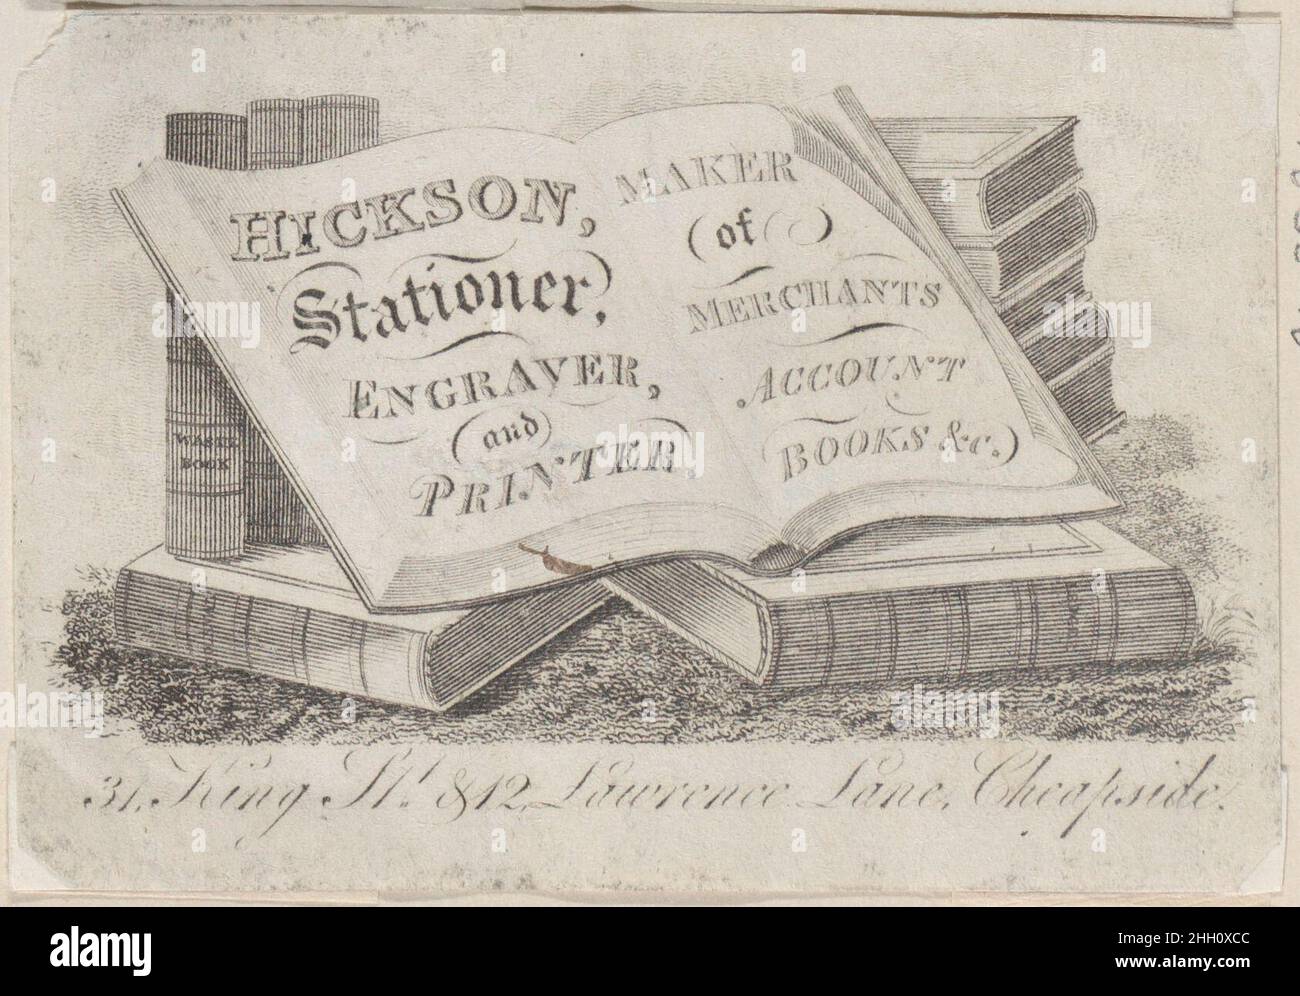 HICKSON,
Stationer,
ENGRAVER,
and
PRINTER,
MAKER
of
MERCHANTS
ACCOUNT
BOOKS &c.
WASTE
BOOK
31, King St. & 12, Lawrence Lane, Cheapside.
alamy
Image ID: 2HH0XCC
www.alamy.com